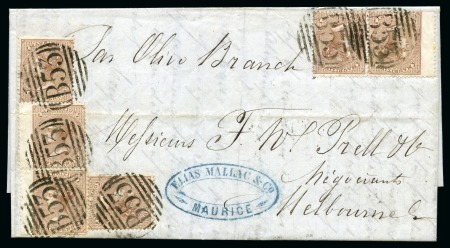 Par Olive Branch
B53
B53
B53
B53
B53
B53
Messieurs F. W. Prell & Co
Négociants
Melbourne
ELIAS MALLAC & Co.
MAURICE